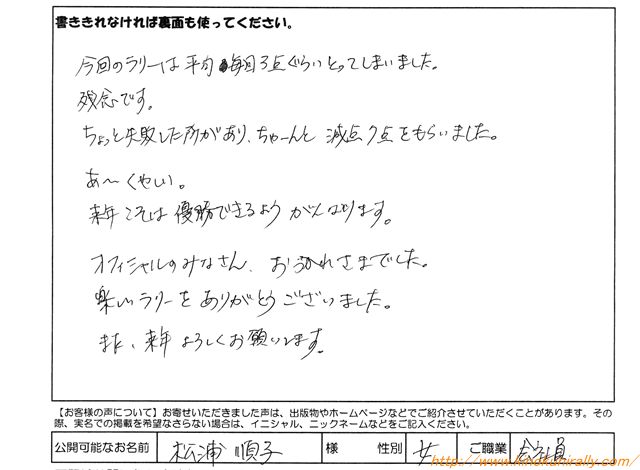 書ききれなければ裏面も使ってください。
今回のラリーは平均毎回3点ぐらいとってしまいました。
残念です。
ちょっと失敗した所があり、ちゃーんと減点7点をもらいました。
あ〜くやしい。
来年こそは優勝できるようがんばります。
オフィシャルのみなさん、おつかれさまでした。
楽しいラリーをありがとうございました。
また、来年よろしくお願いします。
【お客様の声について】お寄せいただきました声は、出版物やホームページなどでご紹介させていただくことがあります。その
際、実名での掲載を希望なさらない場合は、イニシャル、ニックネームなどをご記入ください。
公開可能なお名前 松浦 順子 様 性別 女 ご職業 会社員